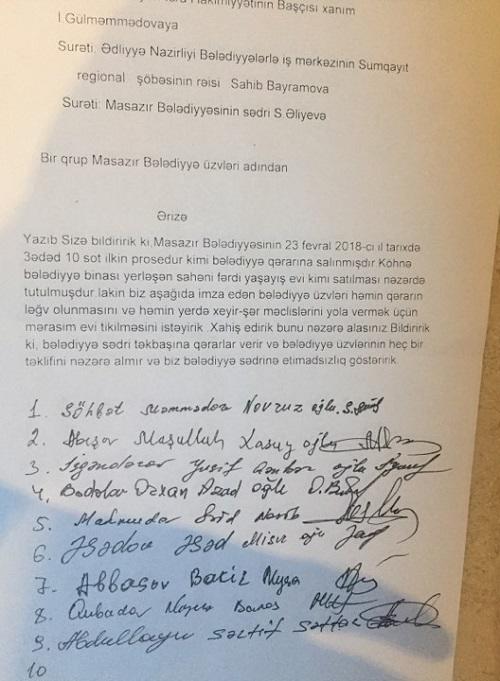 Hakimiyyətinin Başçısı xanım
İ.Gülməmmədovaya
Surəti. Ədliyyə Nazirliyi Bələdiyyələrlə iş mərkəzinin Sumqayıt
regional şöbəsinin rəisi Sahib Bayramova
Surəti: Masazır Bələdiyyəsinin sədri S.Əliyevə
Bir qrup Masazır Bələdiyyə üzvləri adından
Ərizə
Yazıb Sizə bildiririk ki, Masazır Bələdiyyəsinin 23 fevral 2018-ci il tarixdə
3ədəd 10 sot ilkin prosedur kimi bələdiyyə qərarına salınmışdır Köhnə
bələdiyyə binası yerləşən sahəni fərdi yaşayış evi kimi satılması nəzərdə
tutulmuşdur lakin biz aşağıda imza edən bələdiyyə üzvləri həmin qərarın
ləğv olunmasını və həmin yerdə xeyir-şər məclislərini yola vermək üçün
mərasim evi tikilməsini istəyirik. Xahiş edirik bunu nəzərə alasınız.Bildiririk
ki, bələdiyyə sədri təkbaşına qərarlar verir və bələdiyyə üzvlərinin heç bir
təklifini nəzərə almır və biz bələdiyyə sədrinə etimadsızlıq göstəririk
1. Söhbət Məmmədov Novruz oğlu
2. Maşallah oğlu
3. Yusif oğlu
4. Orxan Azad oğlu
5.
6. Əsədov Əsəd oğlu
7. Abbasov
8.
9. Abdullayev Səttar
10